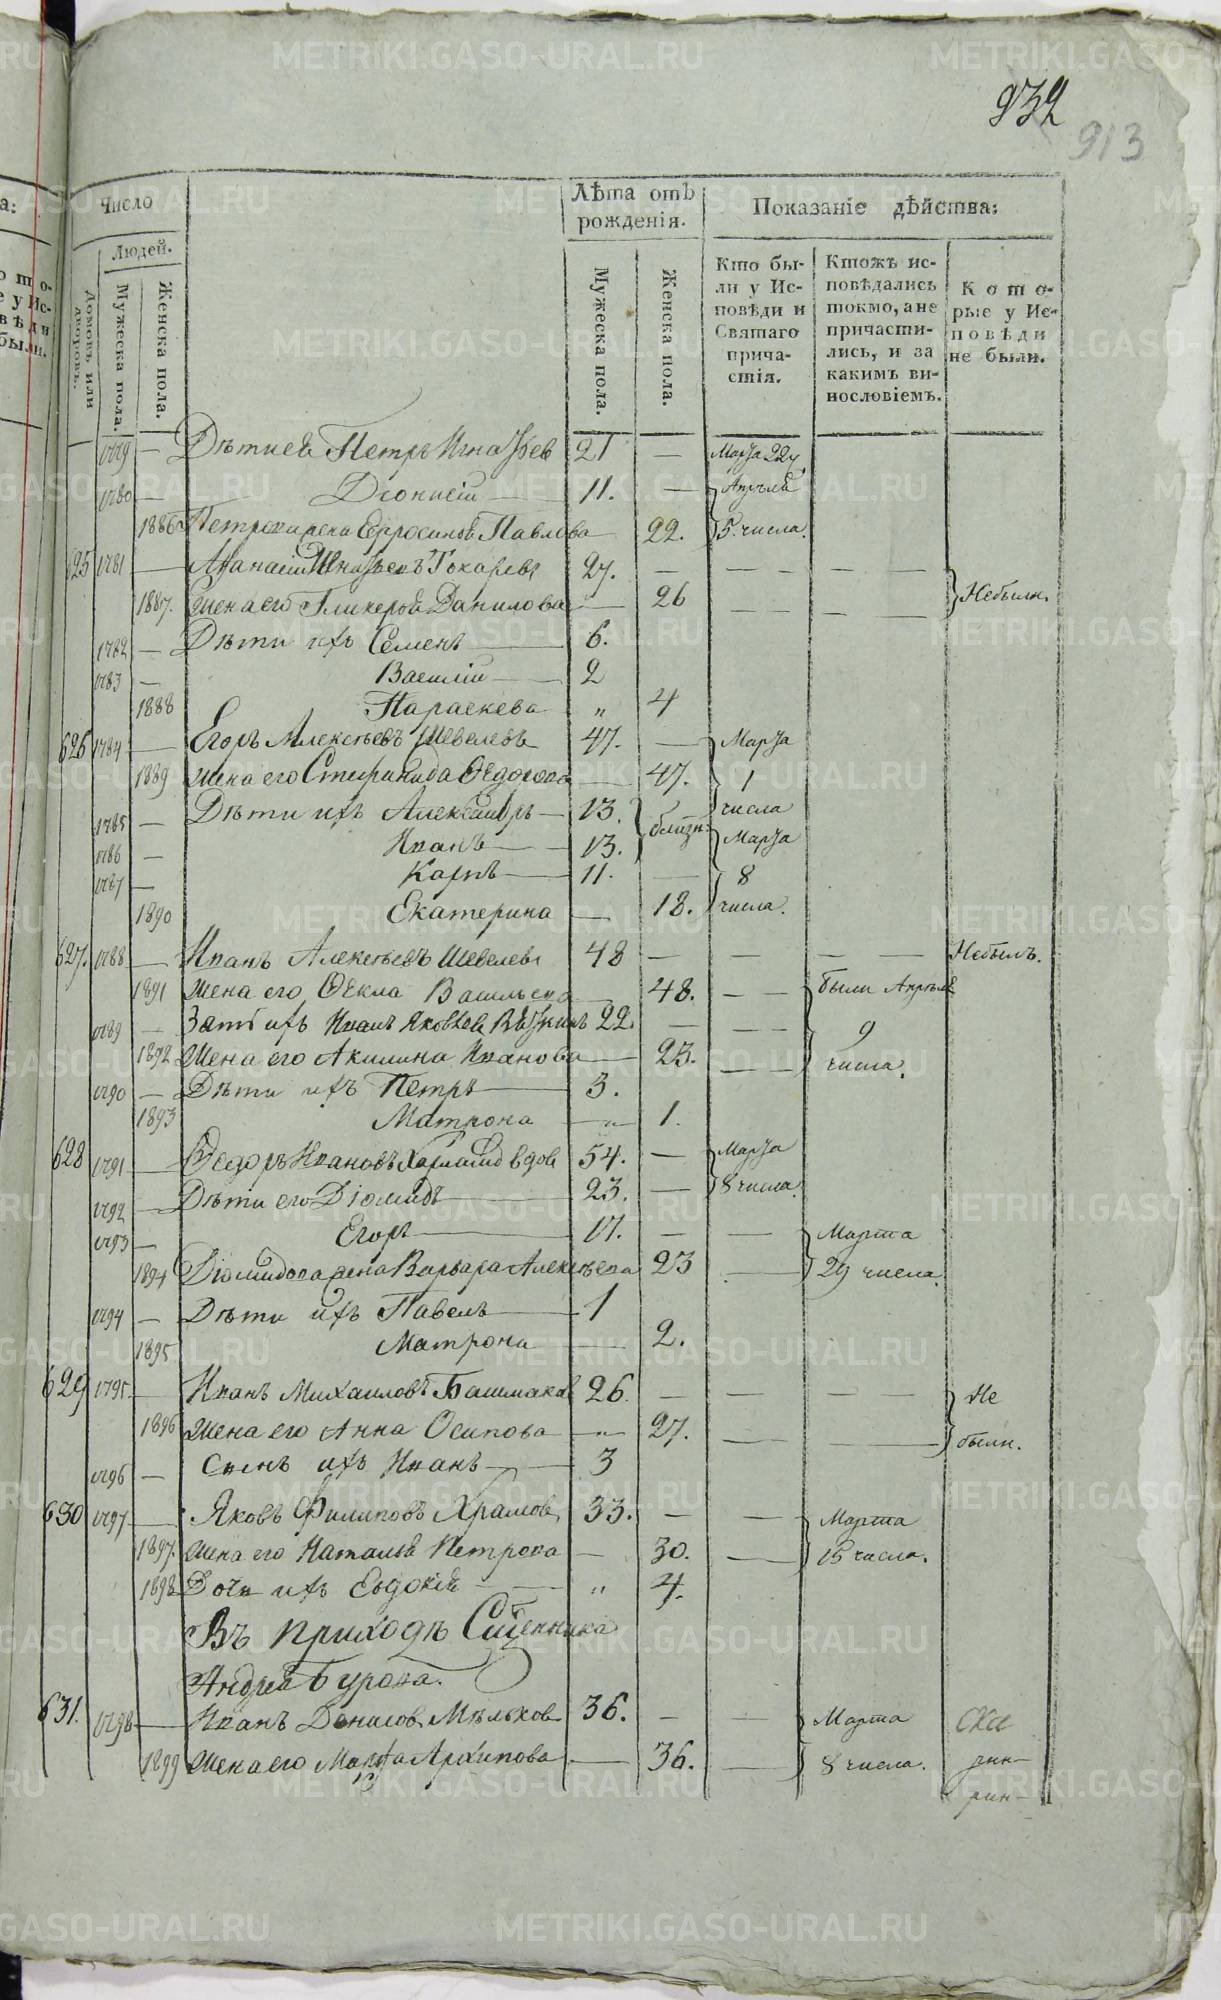 932
913
Число
Лѣта отъ рожденія.
Показаніе дѣйства:
Людей.
Домовъ или дворовъ.
Мужеска пола.
Женска пола.
Мужеска пола.
Женска пола.
Кто были у Исповѣди и Святаго причастія.
Ктожъ исповѣдались токмо, а не причастились, и за какимъ винословіемъ.
Которые у Исповѣди не были.
1779 — Петръ Игнатьев 21 — Марта 22
1780 — Діонисій — 11. — Апрѣля
1886 Павлова 22. 5. числа.
625 1781 — Токаревъ 27. — — — — —
1887. Жена его Данилова — 26 — — — Небыли.
1782 — Дѣти ихъ Семенъ — 6.
1783 — Василій — 2
1888 Параскева „ 4
626 1784 — Егоръ Алексѣевъ Шевелевъ 47. — Марта
1889 Жена его Стефанида Федорова — 47. 1
1785 — Дѣти ихъ Александръ — 13. близн. числа
1786 — Иванъ — 13. Марта
1787 — Карпъ — 11. — 8
1890 Екатерина — 18. числа.
627. 1788 — Иванъ Алексѣевъ Шевелевъ 48 — — — — Небылъ.
1891 Жена его Фекла Васильева — 48. — — были Апрѣля
1789 — Зять ихъ Иванъ Яковлев 22. — — — 9
1892 Жена его Акилина Иванова — 23. — — числа.
1790 — Дѣти ихъ Петръ — 3.
1893 Матрона — „ — 1.
628 1791 — Федоръ Ивановъ вдов 54. — Марта
1792 — Дѣти его Діомидъ — 23. — 8 числа.
1793 — Егоръ — 17. — — Марта
1894 Діомидова жена Варвара Алексѣева 23 — 29 числа.
1794 — Дѣти ихъ Павелъ — 1
1895 Матрона — 2.
629 1795 — Иванъ Михаиловъ Башмаков 26. — — — — Не
1896 Жена его Анна Осипова — „ — 27. — — были.
1796 — Сынъ ихъ Иванъ — 3
630 1797 — Яковъ Филиповъ Храмов 33. — — Марта
1897. Жена его Наталья Петрова — 30. — 15 числа.
1898 Дочь ихъ Евдокія — „ 4.
Въ приходѣ Сщенника
Андрея Бурова.
631. 1798 — Иванъ Денисов Мѣльков 36. — — Марта
1899 Жена его Марфа Архипова — 36. — 8 числа.
METRIKI.GASO-URAL.RU